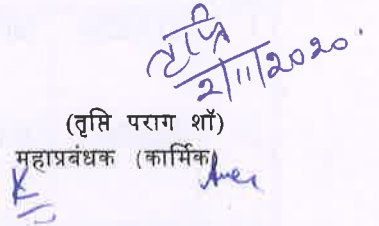 तृप्ति
2/11/2020.
(तृप्ति पराग शॉ)
महाप्रबंधक (कार्मिक)